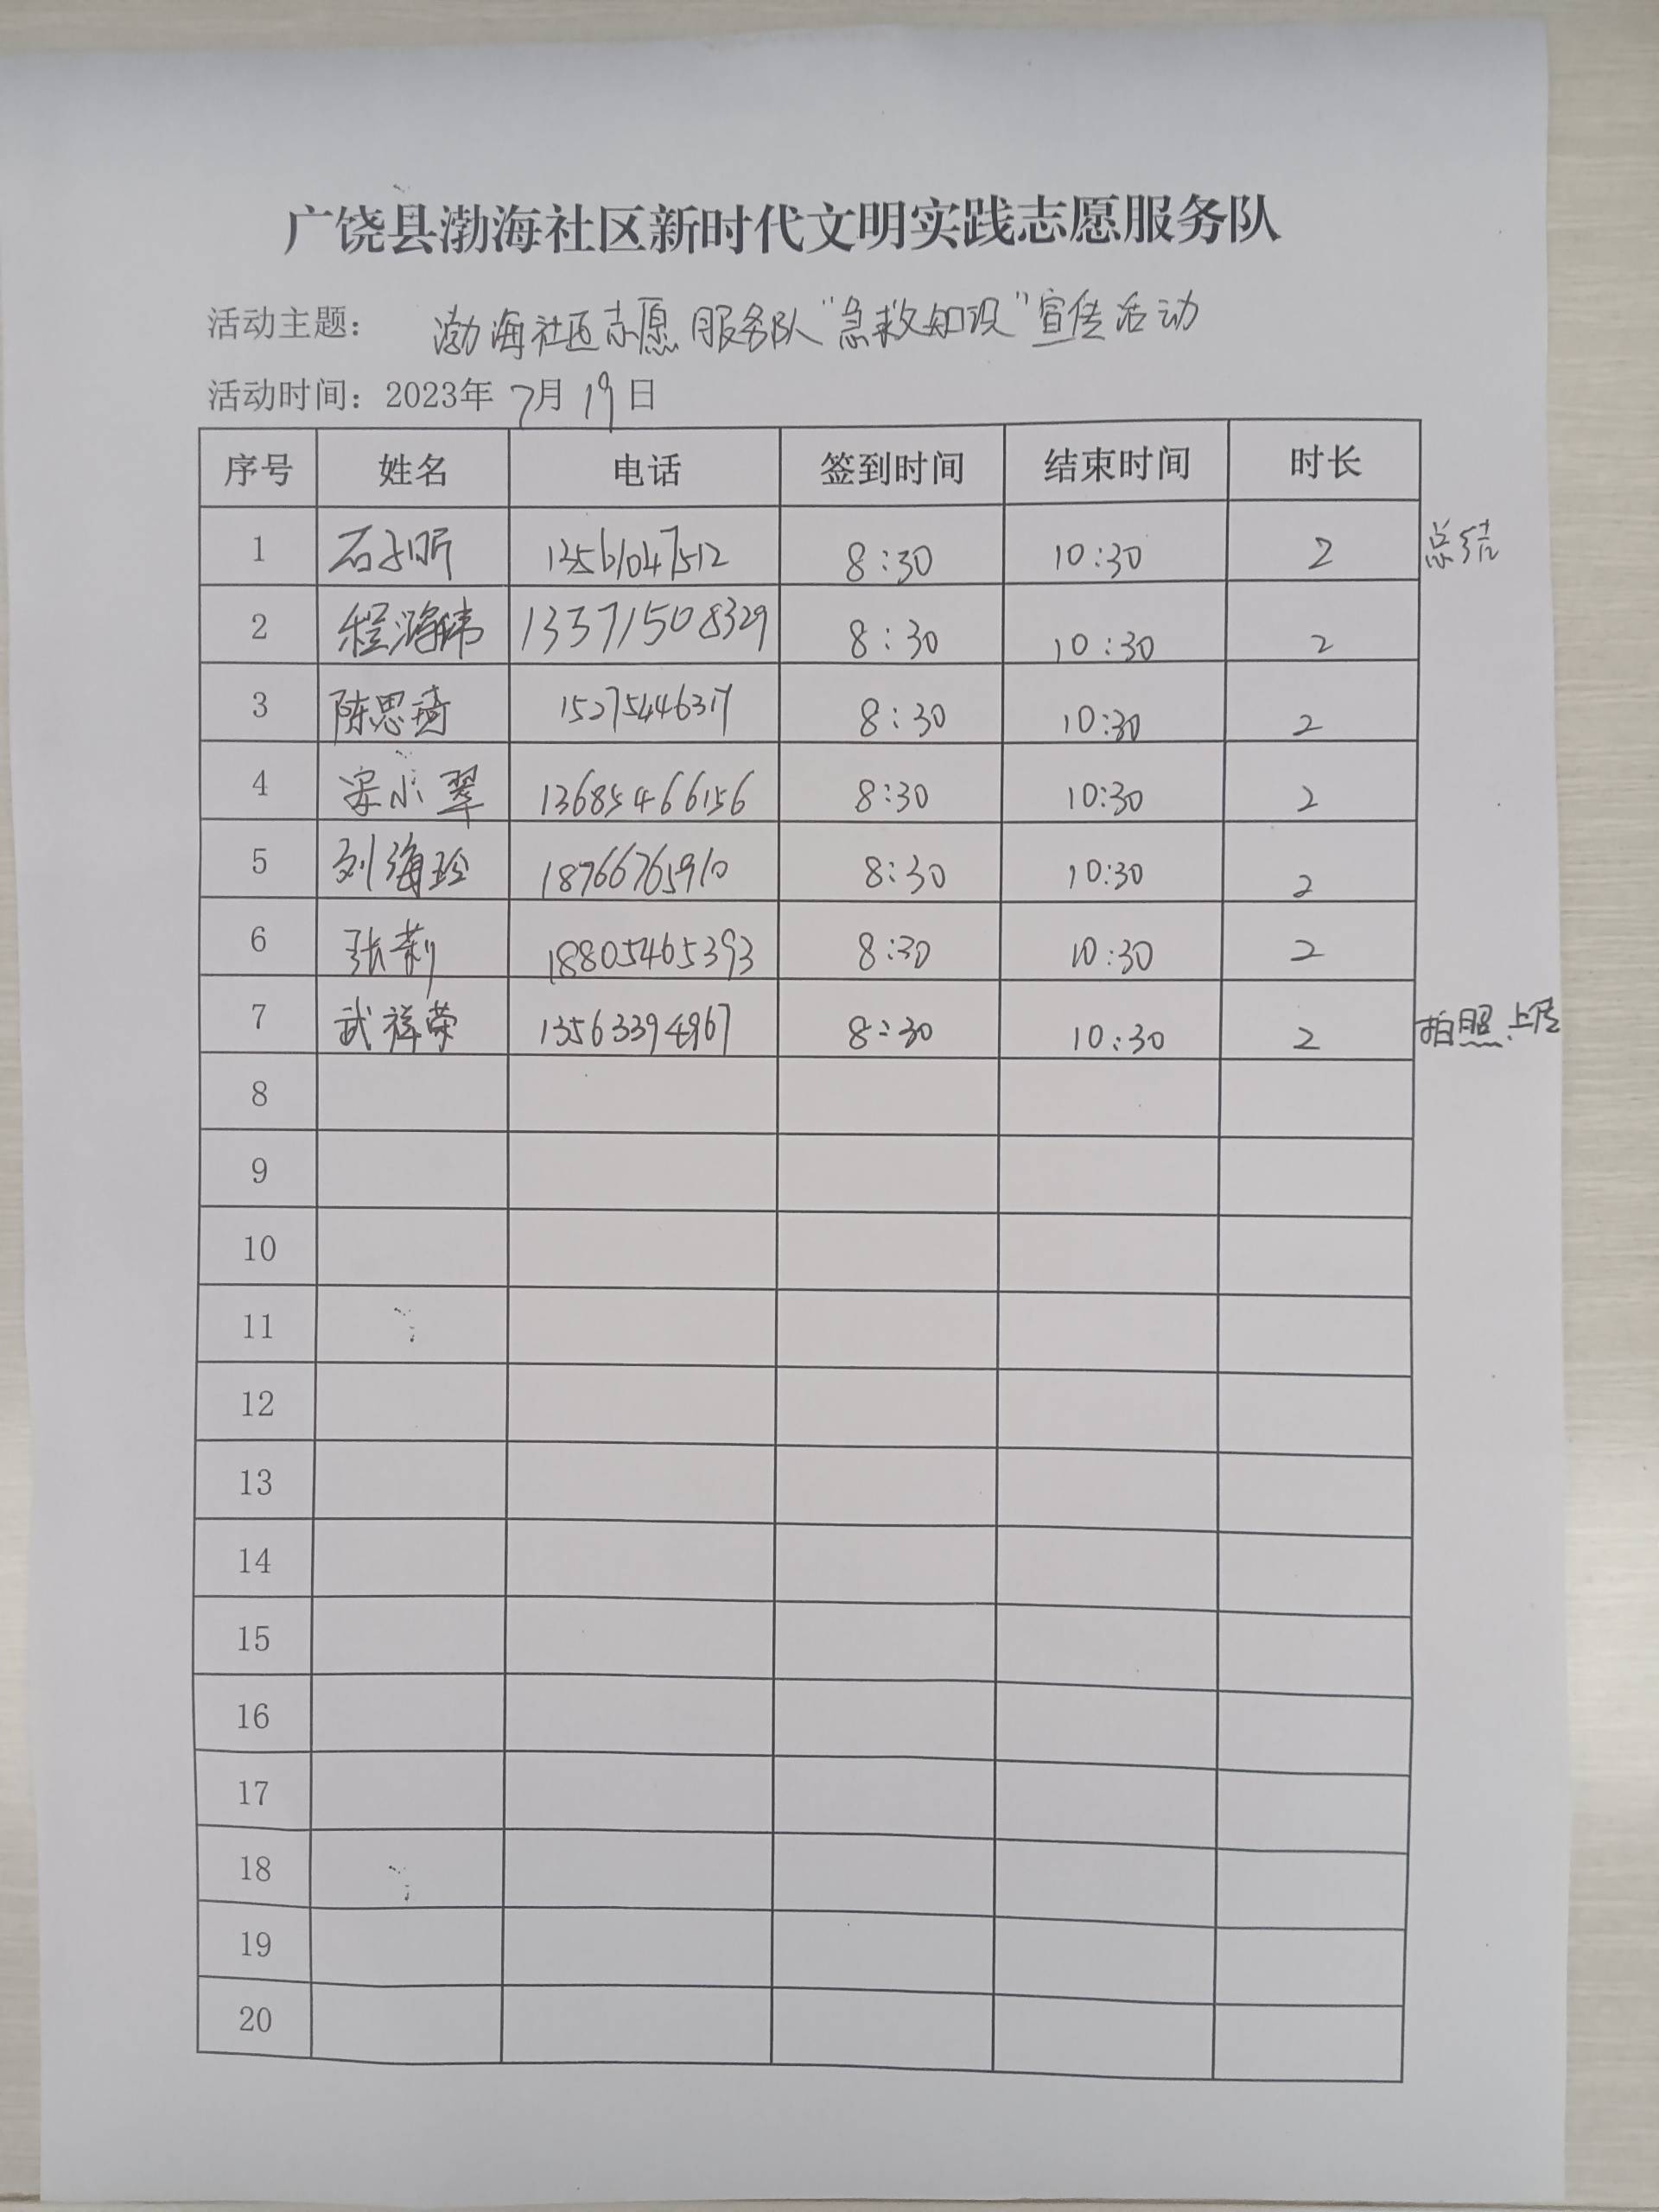 广饶县渤海社区新时代文明实践志愿服务队
活动主题： 渤海社区志愿服务队“急救知识”宣传活动
活动时间：2023年 7月 19日
序号 姓名 电话 签到时间 结束时间 时长
1 石子昕 13561047512 8:30 10:30 2 总结
2 程海玮 13371508329 8:30 10:30 2
3 陈思琦 15275446317 8:30 10:30 2
4 宋小翠 13685466156 8:30 10:30 2
5 刘海玲 18766765910 8:30 10:30 2
6 张莉 18805465393 8:30 10:30 2
7 武祥荣 13563394967 8:30 10:30 2 拍照、上传
8
9
10
11
12
13
14
15
16
17
18
19
20